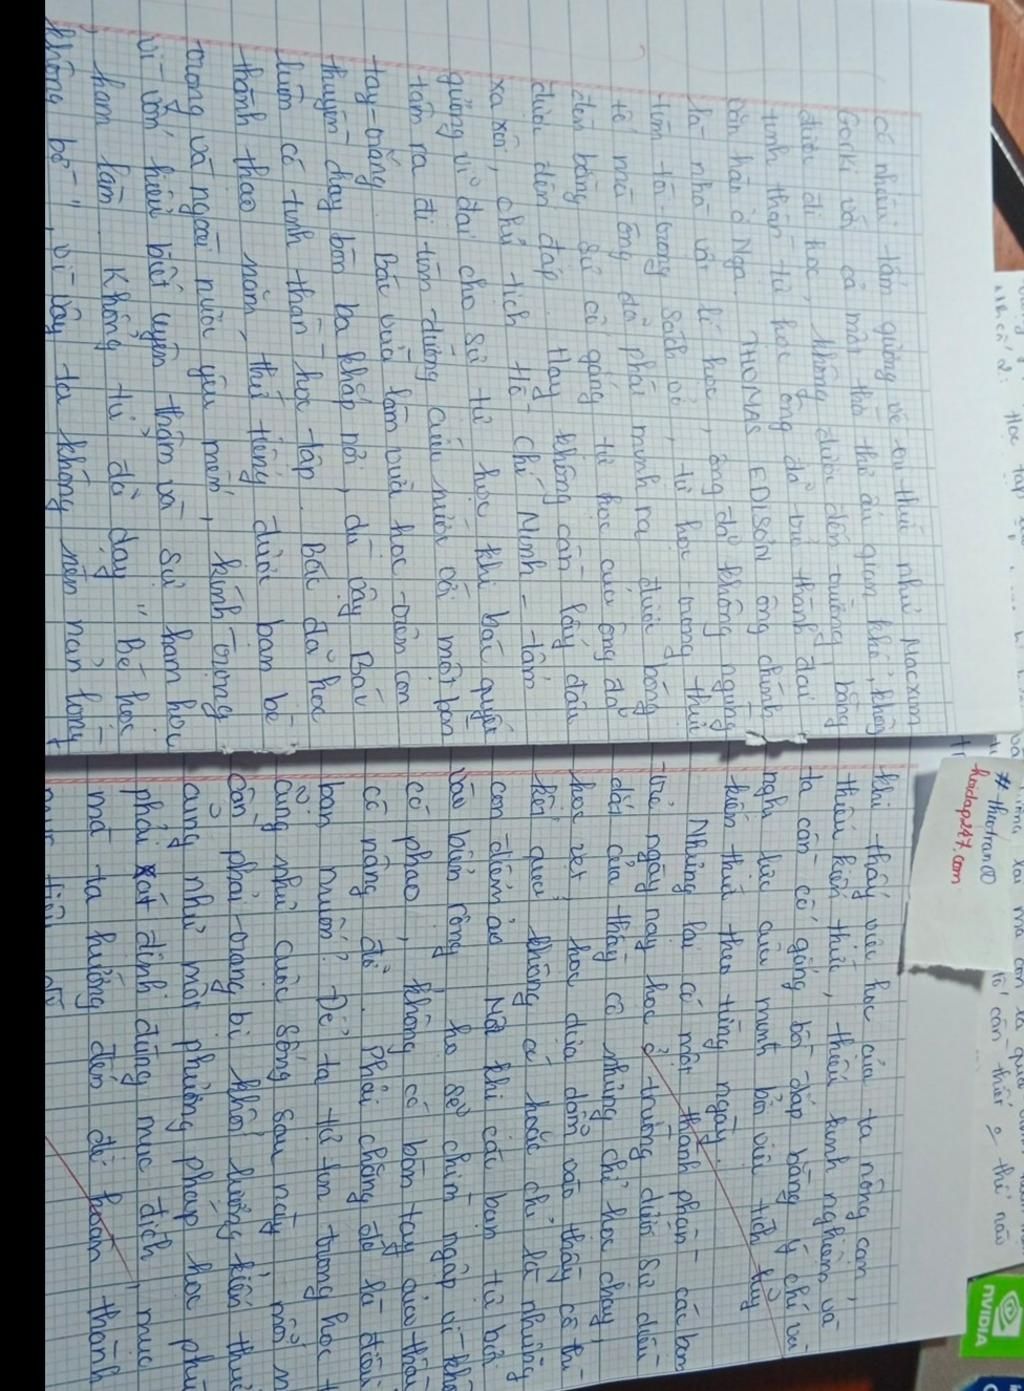 có nhiều tấm gương về ... thức như Macxim
Gorki với cả một thời thơ ấu gian khổ, không
được đi học, không được đến trường, bằng
tinh thần tự học ông đã trở thành đại
văn hào ở Nga. THOMAS EDISON ông chính
là nhà vật lí học, ông đã không ngừng
tìm tòi trong sách vở, tự học trong thực
tế mà ông đã phát minh ra được bóng
đèn bằng sự cố gắng tự học của ông đã
được đền đáp. Hay không cần lấy đâu
xa xôi, chủ tịch Hồ Chí Minh - tấm
gương vĩ đại cho sự tự học khi bác quyết
tâm ra đi tìm đường cứu nước với một bàn
tay trắng. Bác vừa làm vừa học trên con
thuyền hay bôn ba khắp nơi, dù vậy Bác
luôn có tinh thần học tập. Bác đã học
thành thạo năm, thứ tiếng được bạn bè
trong và ngoài nước yêu mến, kính trọng
vì vốn hiểu biết uyên thâm và sự ham học
ham làm. Khổng tử đã dạy "bể học
không bờ", vì vậy ta không nên nản lòng
khi thấy việc học của ta nông cạn,
thiếu kiến thức, thiếu kinh nghiệm và
ta cần cố gắng bồi đắp bằng ý chí và
nghị lực của mình bởi việc tích lũy
kiến thức theo từng ngày.
Nhưng lại có một thành phần các bạn
trẻ ngày nay học ở trường dưới sự dẫn
dắt của thầy cô nhưng chỉ học chay,
học vẹt, học dựa dẫm vào thầy cô thì
kết quả không có hoặc chỉ là những
con điểm ảo. Nên khi các bạn tự bơi
vào biển rộng họ sẽ chìm ngập vì
có phao, không có bàn tay của
cô nâng đỡ. Phải chăng đó là điều
bạn muốn? Để ta tự tin trong học
cũng như cuộc sống sau này, mỗi
cần phải trang bị khối lượng kiến
cũng như một phương pháp học
phải xác định đúng mục đích, mục
mà ta hướng đến để hoàn thành
mục tiêu đó
# thaotran00
hoidap247.com
NVIDIA